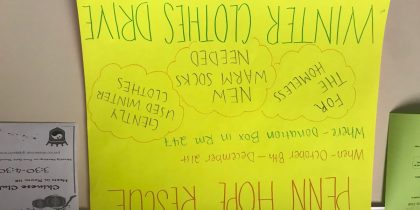 PENN HOPE RESCUE
When- October 8th - December 21st
Where: Donation Box in Rm 247
FOR
THE
HOMELESS
NEW
WARM SOCKS
NEEDED
GENTLY
USED WINTER
CLOTHES
WINTER CLOTHES DRIVE
Chinese Club
3:30-4:30